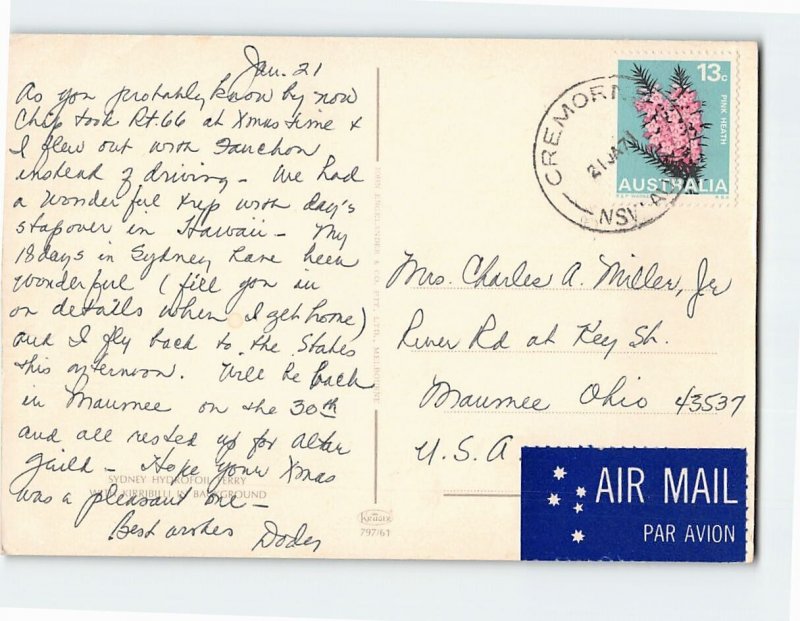 Jan. 21
As you probably know by now
Chip took Rt. 66 at Xmas time &
I flew out with Fauchon
instead of driving - We had
a wonderful trip with day's
stopover in Hawaii - My
18 days in Sydney have been
wonderful (fill you in
on details when I get home)
and I fly back to the States
this afternoon. Will be back
in Maumee on the 30th
and all rested up for Altar
Guild - Hope your Xmas
was a pleasant one -
Best wishes
SYDNEY HYDROFOIL FERRY
KIRRIBILLI IN BACKGROUND
797/61
CREMORN
21 JA 71
NSW-AU
13c
PINK HEATH
AUSTRALIA
Mrs. Charles A. Miller, Jr
River Rd at Key St.
Maumee Ohio 43537
U.S.A.
AIR MAIL
PAR AVION